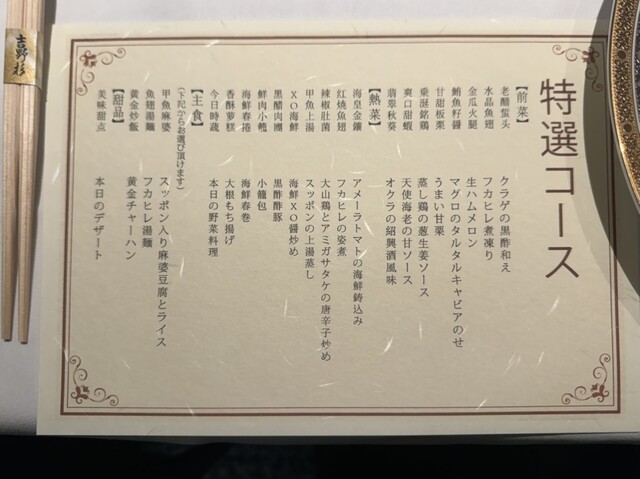 特選コース
【前菜】
老醋蜇头 クラゲの黒酢和え
水晶魚翅 フカヒレ煮凍り
金瓜火腿 生ハムメロン
鮪魚籽醤 マグロのタルタルキャビアのせ
甘甜板栗 うまい甘栗
乗涎銘鶏 蒸し鶏の葱生姜ソース
爽口甜蝦 天使海老の甘ソース
翡翠秋葵 オクラの紹興酒風味
【熱菜】
海皇金鑲 アメーラトマトの海鮮鋳込み
紅焼魚翅 フカヒレの姿煮
辣椒肚菌 大山鶏とアミガサタケの唐辛子炒め
甲魚上湯 スッポンの上湯蒸し
XO海鮮 海鮮XO醤炒め
黒醋肉團 黒酢酢豚
鮮肉小籠 小籠包
海鮮春捲 海鮮春巻
香酥萝糕 大根もち揚げ
今日時蔬 本日の野菜料理
【主食】
(下記からお選び頂けます)
甲魚麻婆 スッポン入り麻婆豆腐とライス
魚翅湯麺 フカヒレ湯麺
黄金炒飯 黄金チャーハン
【甜品】
美味甜点 本日のデザート
吉野杉